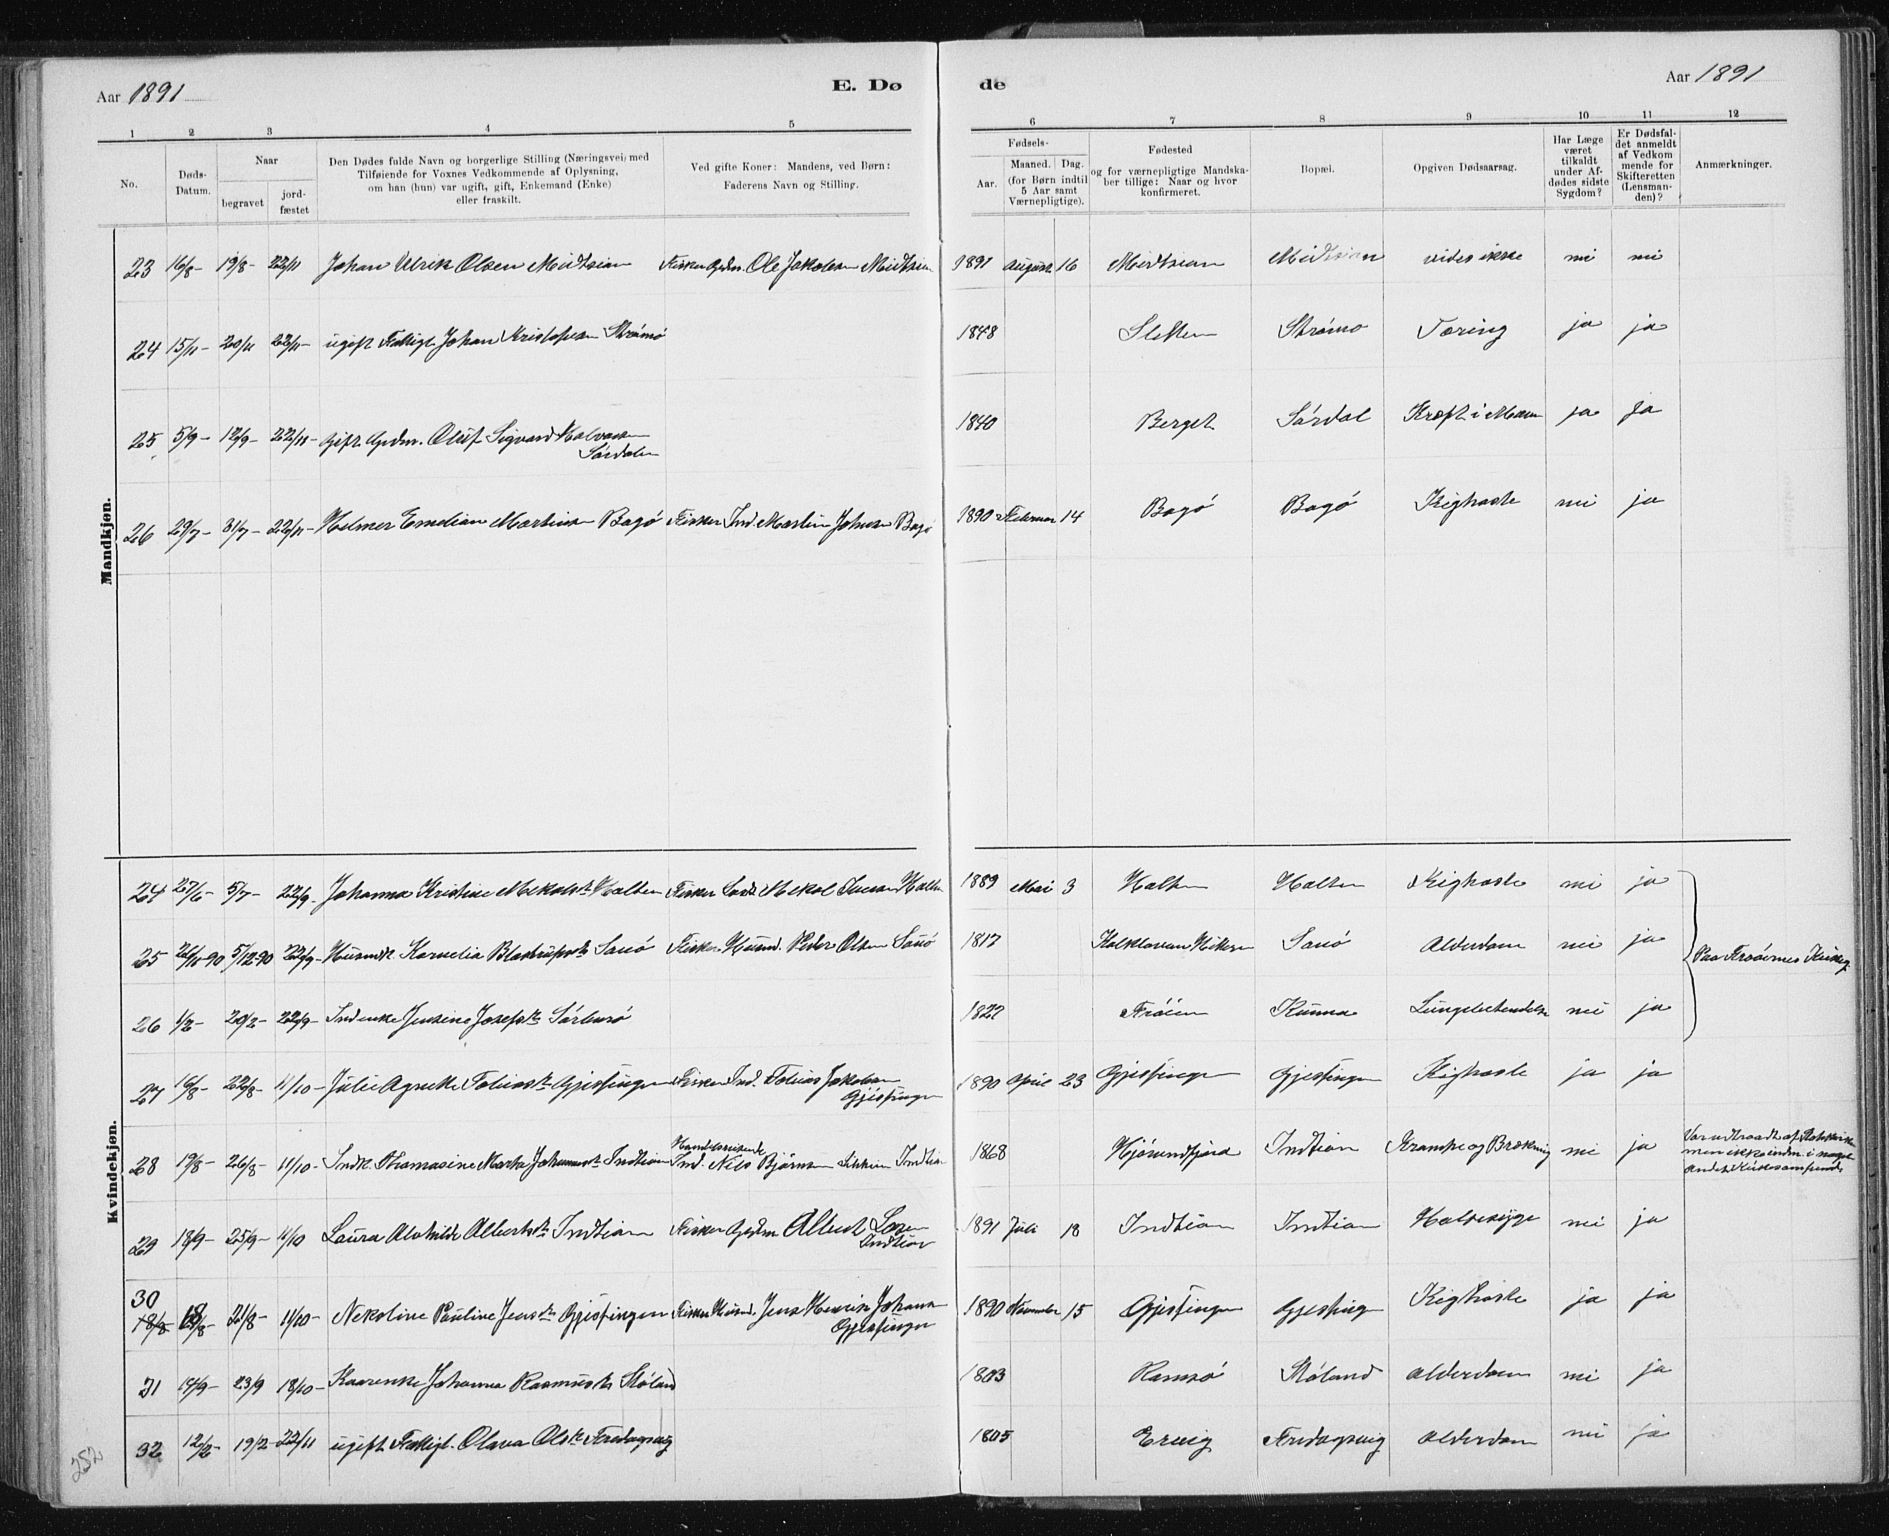 Aar 1891
E. Dø
de
Aar 1891
1 2 3 4 5 6 7 8 9 10 11 12
No.
Døds-
Datum.
Naar
begravet
jord-
fæstet
Den Dødes fulde Navn og borgerlige Stilling (Næringsvei) med
Tilføiende for Voxnes Vedkommende af Oplysning,
om han (hun) var ugift, gift, Enkemand (Enke)
eller fraskilt.
Ved gifte Koner: Mandens, ved Børn:
Faderens Navn og Stilling.
Fødsels-
Aar.
Maaned. Dag.
(for Børn indtil
5 Aar samt
Værnepligtige).
Fødested
og for værnepligtige Mandska-
ber tillige: Naar og hvor
konfirmeret.
Bopæl.
Opgiven Dødsaarsag.
Har Læge
været
tilkaldt
under Af-
dødes sidste
Sygdom?
Er Dødsfal-
det anmeldt
af Vedkom
mende for
Skifteretten
(Lensman-
den)?
Anmærkninger.
Mandkjøn.
23 16/8- 19/8- 22/11 Johan Ulrik Olsen Midtsian Fisker Gdm. Ole Jakobsen Midtsian 1891 August 16 Midtsian Midtsian vides ikke nei nei
24 15/11- 20/11 22/11- ugift Fattigl. Johan Kristofersen Strømø 1848 Sletten Strømø Tæring ja ja
25 5/9- 12/9- 22/11- Gift Gdm. Oluf Sigvard Halvorsen
Sørdalen 1840 Berget Sørdal Kræft i Maven ja ja
26 29/7- 31/7- 22/11- Helmer Emelian Martinsen Bagø Fisker Ind. Martin Johnsen Bagø 1890 Februar 14 Bagø Bagø Kighoste nei ja
Kvindekjøn.
24 27/6- 5/7- 22/9- Johanna Kristine Mekalsdt. Halten Fisker Mekal Halten 1889 Mai 3 Halten Halten Kighoste nei ja
25 26/11-90 5/12 90 22/9- Husmdk. Kornelia Blastrupsdt. Sauø Fisker Husmd. Peder Olsen Sauø 1817 Sauø Alderdom nei ja
Paa Froøernes Kirkeg.
26 1/2- 20/2- 22/9- Indenke Jensine Josefsdt. Sørburø 1822 Frøien Kunna Lungebetendelse nei ja
27 16/8- 22/8- 11/10- Julie Agnethe Tobiasdt. Gjæsingen Fisker Ind. Tobias Jakobsen
Gjæsingen 1890 April 23 Gjæsingen Gjæsingen Kighoste ja ja
28 19/8- 26/8- 11/10- Indk. Thomasine Marta Johannesdt. Indtian Handelsreisende
Ind. Nils Bjørnsen Indtian 1868 Hjørundfjord Indtian Krampe og Brækning nei ja Var udtraadt af Statskirken
men ikke indm. i noget
andet Kirkesamfund
29 18/9- 25/9- 11/10 Laura Alvhilde Albertsdt. Indtian Fisker Gdm Albert
Indtian 1891 Juli 18 Indtian Indtian Halsesyge nei ja
30 18/8- 18/8- 21/8- 11/10- Nekoline Pauline Jensdt. Gjæsingen Fisker Husmd. Jens Henrik Johans.
Gjæsingen 1890 November 15 Gjæsingen Gjæsing Kighoste ja ja
31 14/9- 23/9 18/10- Kaarenke Johanna Rasmusdt. Støland 1803 Ramsø Støland Alderdom nei ja
32 12/2- 19/2- 22/11 ugift Fattigl. Olava Olsdt. Fredagsvig 1805 Ervig Fredagsvig Alderdom nei ja
252